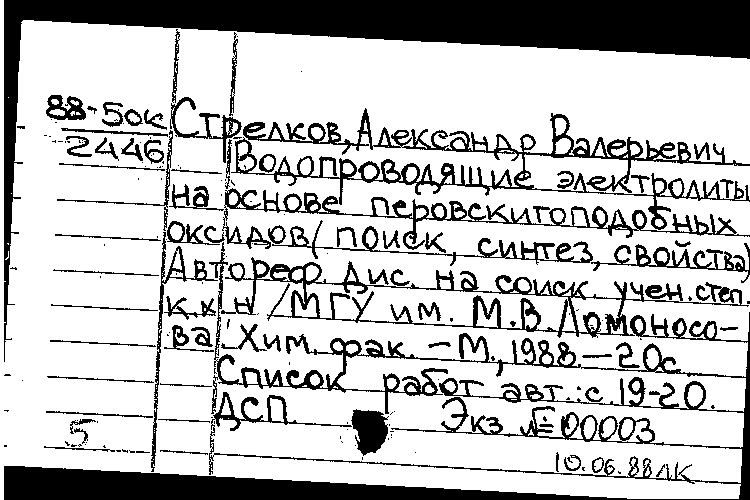 88-5ок Стрелков, Александр Валерьевич.
2446 Водопроводящие электролиты
на основе перовскитоподобных
оксидов (поиск, синтез, свойства)
Автореф. дис. на соиск. учен. степ.
к.х.н /МГУ им. М.В. Ломоносо-
ва. Хим. фак. – М., 1988. – 20с.
Список работ авт.: с. 19-20.
ДСП. Экз. № 00003
5
10.06.88 ЛК